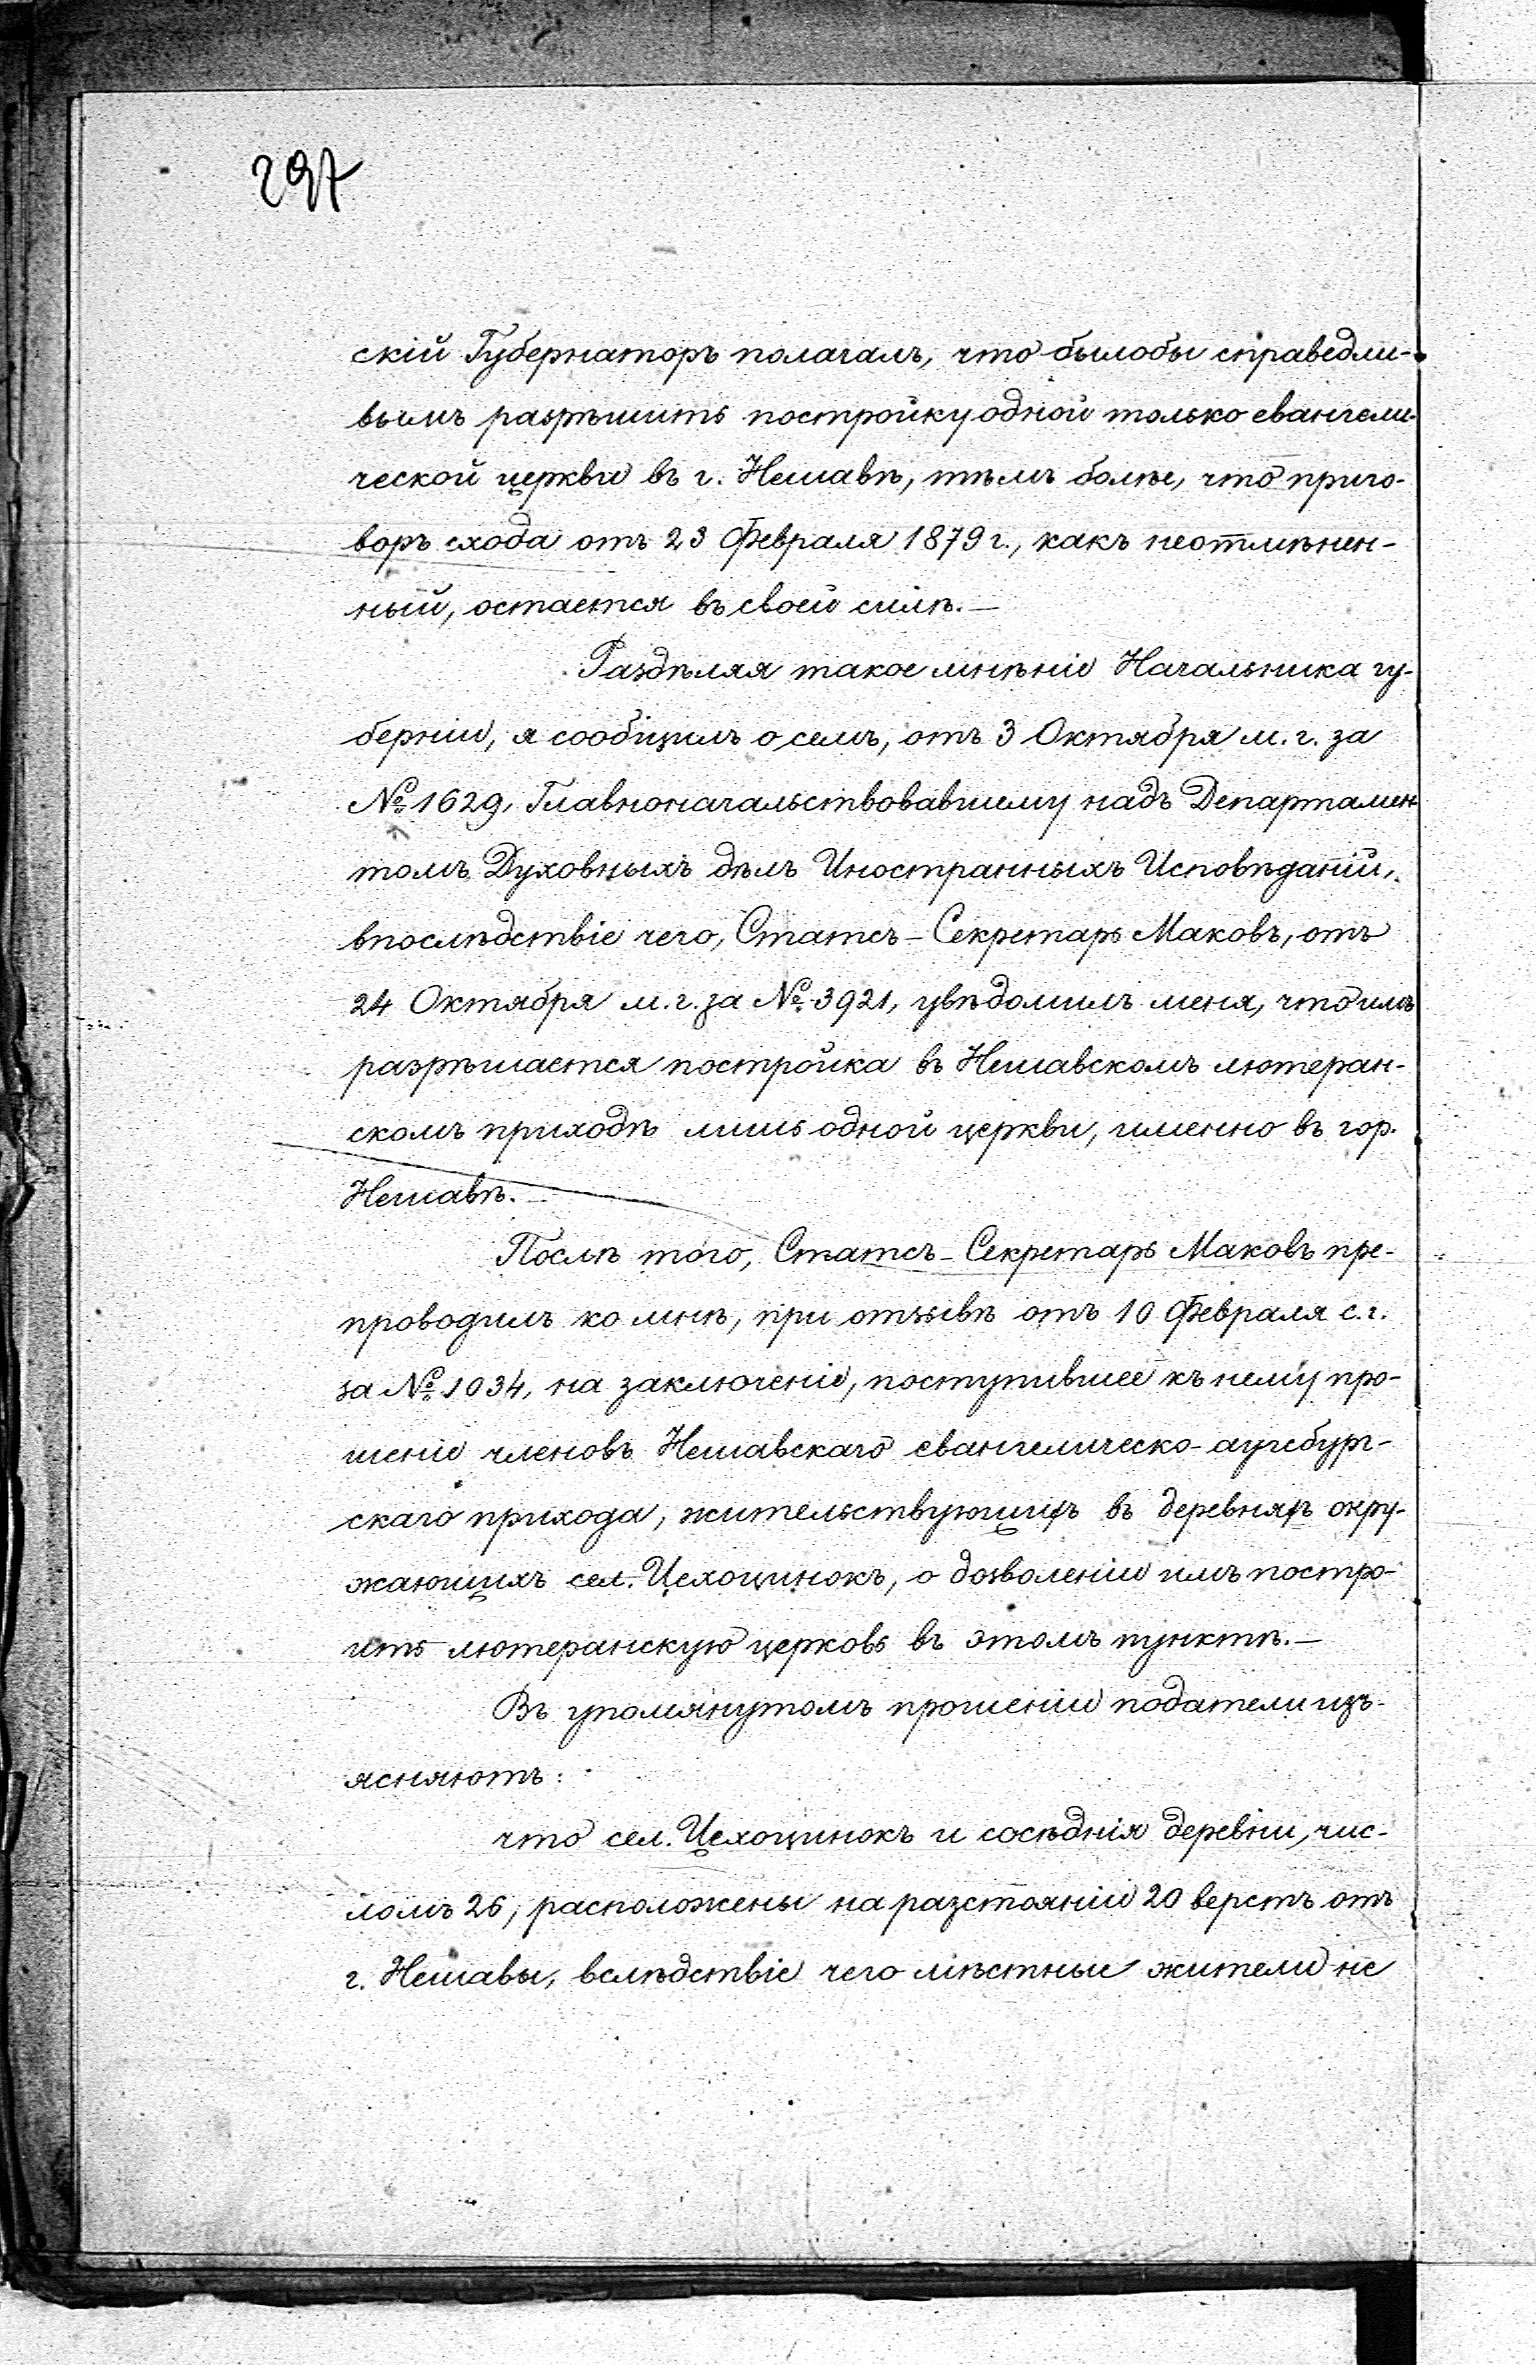 297
скій Губернаторъ полагалъ, что былобы справедли-
вымъ разрѣшить постройку одной только евангели-
ческой церкви въ г. Нешавѣ, тѣмъ болѣе, что приго-
воръ схода отъ 23 Февраля 1879 г., какъ неотмѣнен-
ный, остается въ своей силѣ.—
Раздѣляя такое мнѣніе Начальника гу-
берніи, я сообщилъ о семъ, отъ 3 Октября м. г. за
№ 1629, Главноначальствовавшему надъ Департамен
томъ Духовныхъ дѣлъ Иностранныхъ Исповѣданій,
впослѣдствіе чего, Статсъ-Секретарь Маковъ, отъ
24 Октября м. г. за № 3921, увѣдомилъ меня, что имъ
разрѣшается постройка въ Нешавскомъ лютеран-
скомъ приходѣ лишь одной церкви, именно въ гор.
Нешавѣ.—
Послѣ того, Статсъ-Секретарь Маковъ пре-
проводилъ ко мнѣ, при отзывѣ отъ 10 Февраля с. г.
за № 1034, на заключеніе, поступившее къ нему про-
шеніе членовъ Нешавскаго евангелическо-аугсбург-
скаго прихода, жительствующихъ въ деревняхъ окру-
жающихъ сел. Цехоцинокъ, о дозволеніи имъ постро-
ить лютеранскую церковь въ этомъ пунктѣ.—
Въ упомянутомъ прошеніи податели изъ-
ясняютъ:
что сел. Цехоцинокъ и сосѣднія деревни, чис-
ломъ 26, расположены на разстояніи 20 верстъ отъ
г. Нешавы, вслѣдствіе чего мѣстные жители не